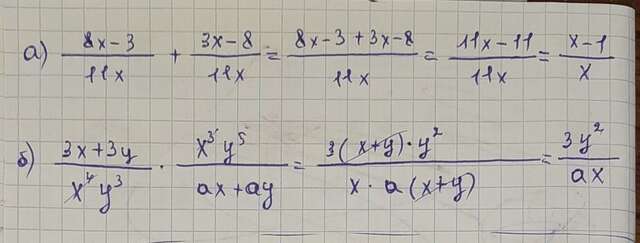 а) (8x-3)/(11x) + (3x-8)/(11x) = (8x-3+3x-8)/(11x) = (11x-11)/(11x) = (x-1)/x
б) (3x+3y)/(x⁴y³) · (x³y⁵)/(ax+ay) = (3(x+y)·y²)/(x·a(x+y)) = (3y²)/(ax)